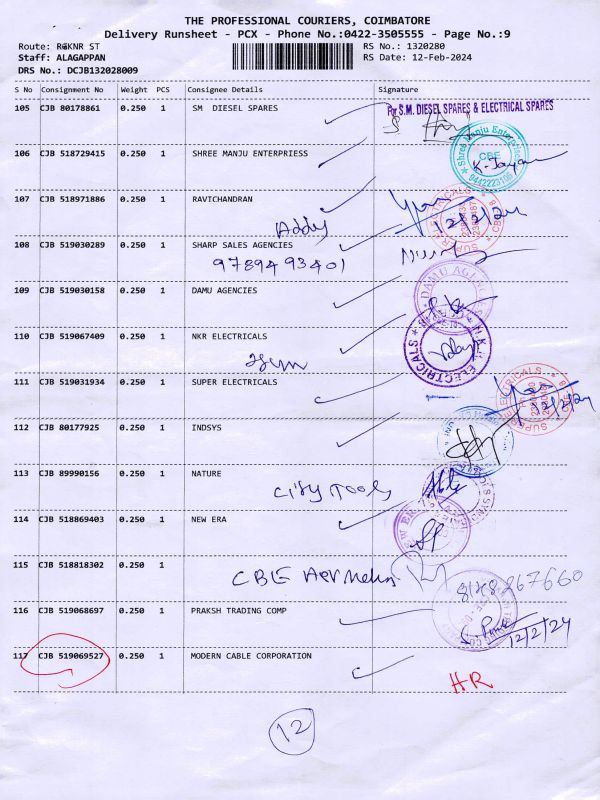 THE PROFESSIONAL COURIERS, COIMBATORE
Delivery Runsheet - PCX - Phone No.:0422-3505555 - Page No.:9
Route: RGKNR ST RS No.: 1320280
Staff: ALAGAPPAN RS Date: 12-Feb-2024
DRS No.: DCJB132028009
S No Consignment No Weight PCS Consignee Details Signature
105 CJB 80178861 0.250 1 SM DIESEL SPARES
For S.M. DIESEL SPARES & ELECTRICAL SPARES
106 CJB 518729415 0.250 1 SHREE MANJU ENTERPRIESS
Shree Manju Enterprises CBE
107 CJB 518971886 0.250 1 RAVICHANDRAN
12/2/24
108 CJB 519030289 0.250 1 SHARP SALES AGENCIES
9789493401
109 CJB 519030158 0.250 1 DAMU AGENCIES
DAMU AGENC
110 CJB 519067409 0.250 1 NKR ELECTRICALS
N.K.R ELECTRICALS
111 CJB 519031934 0.250 1 SUPER ELECTRICALS
12/2/24
112 CJB 80177925 0.250 1 INDSYS
113 CJB 89990156 0.250 1 NATURE
City Tools
114 CJB 518869403 0.250 1 NEW ERA
115 CJB 518818302 0.250 1
CBE
116 CJB 519068697 0.250 1 PRAKSH TRADING COMP
12/2/24
117 CJB 519069527 0.250 1 MODERN CABLE CORPORATION
HR
12